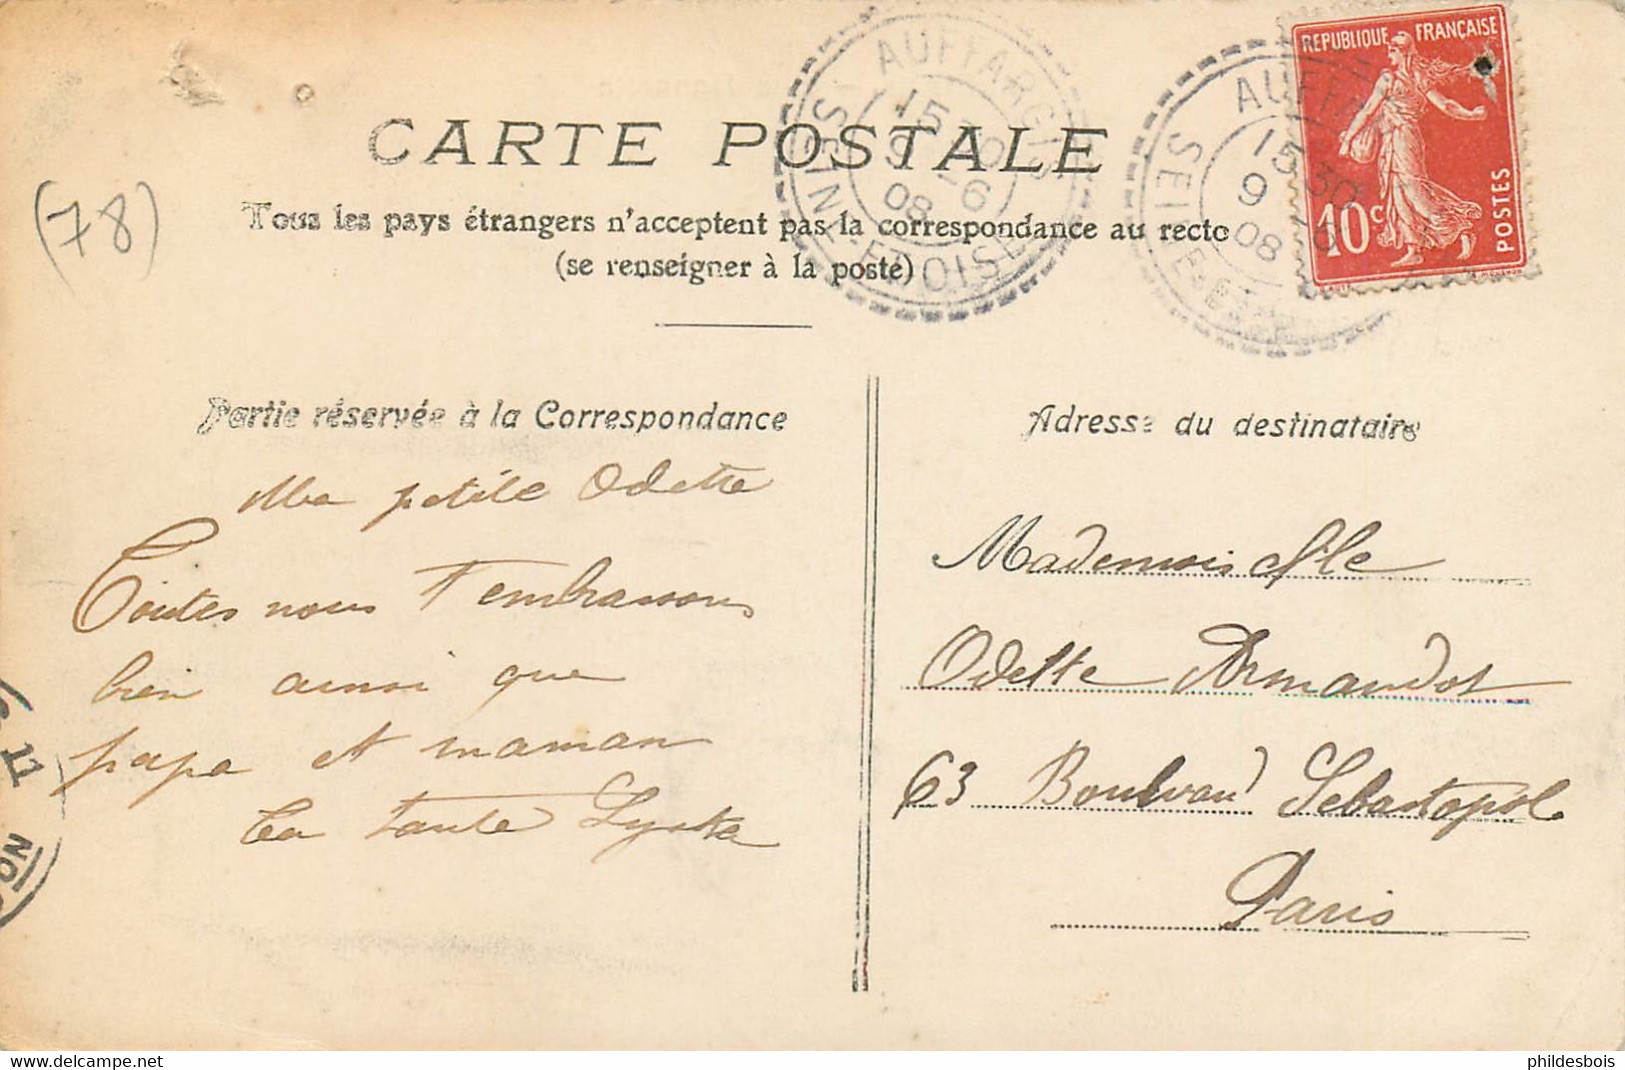 CARTE POSTALE
Tous les pays étrangers n'acceptent pas la correspondance au recto
(se renseigner à la poste)
(78)
AUFFARGIS
15 30
9 -6
08
SEINE-ET-OISE
AUFFA
15 30
9 -6
08
SEINE-ET-
REPUBLIQUE FRANÇAISE
10c
POSTES
Partie réservée à la Correspondance
Ma petite Odette
Toutes nous t'embrassons
bien ainsi que
papa et maman
Ta tante
Adresse du destinataire
Mademoiselle
Odette Armandot
63 Boulevard Sebastopol
Paris
phildesbois